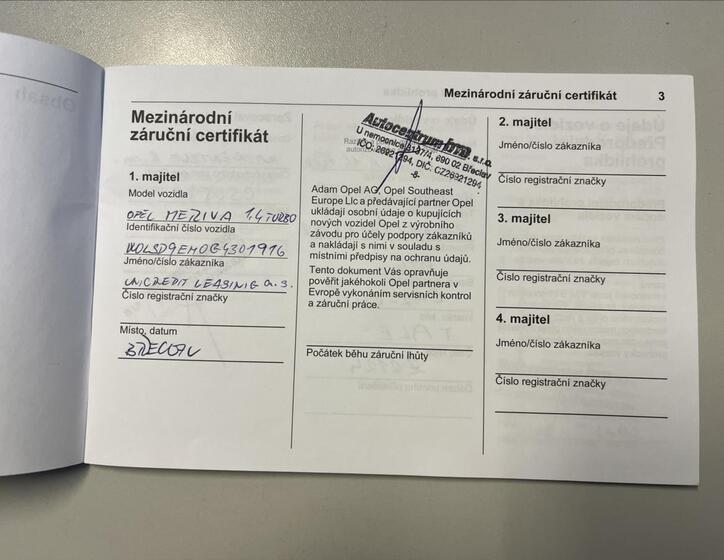 Mezinárodní záruční certifikát 3
Mezinárodní
záruční certifikát
1. majitel
Model vozidla
OPEL MERIVA 1.4 TURBO
Identifikační číslo vozidla
W0LSD9EM0G4301916
Jméno/číslo zákazníka
UNICREDIT LEASING a.s.
Číslo registrační značky
Místo, datum
BŘECLAV
Autocentrum
s.r.o.
U nemocnice 3197/4, 690 02 Břeclav
IČO: 26921294, DIČ: CZ26921294
-8-
Adam Opel AG, Opel Southeast
Europe Llc a předávající partner Opel
ukládají osobní údaje o kupujících
nových vozidel Opel z výrobního
závodu pro účely podpory zákazníků
a nakládají s nimi v souladu s
místními předpisy na ochranu údajů.
Tento dokument Vás opravňuje
pověřit jakéhokoli Opel partnera v
Evropě vykonáním servisních kontrol
a záruční práce.
Počátek běhu záruční lhůty
2. majitel
Jméno/číslo zákazníka
Číslo registrační značky
3. majitel
Jméno/číslo zákazníka
Číslo registrační značky
4. majitel
Jméno/číslo zákazníka
Číslo registrační značky